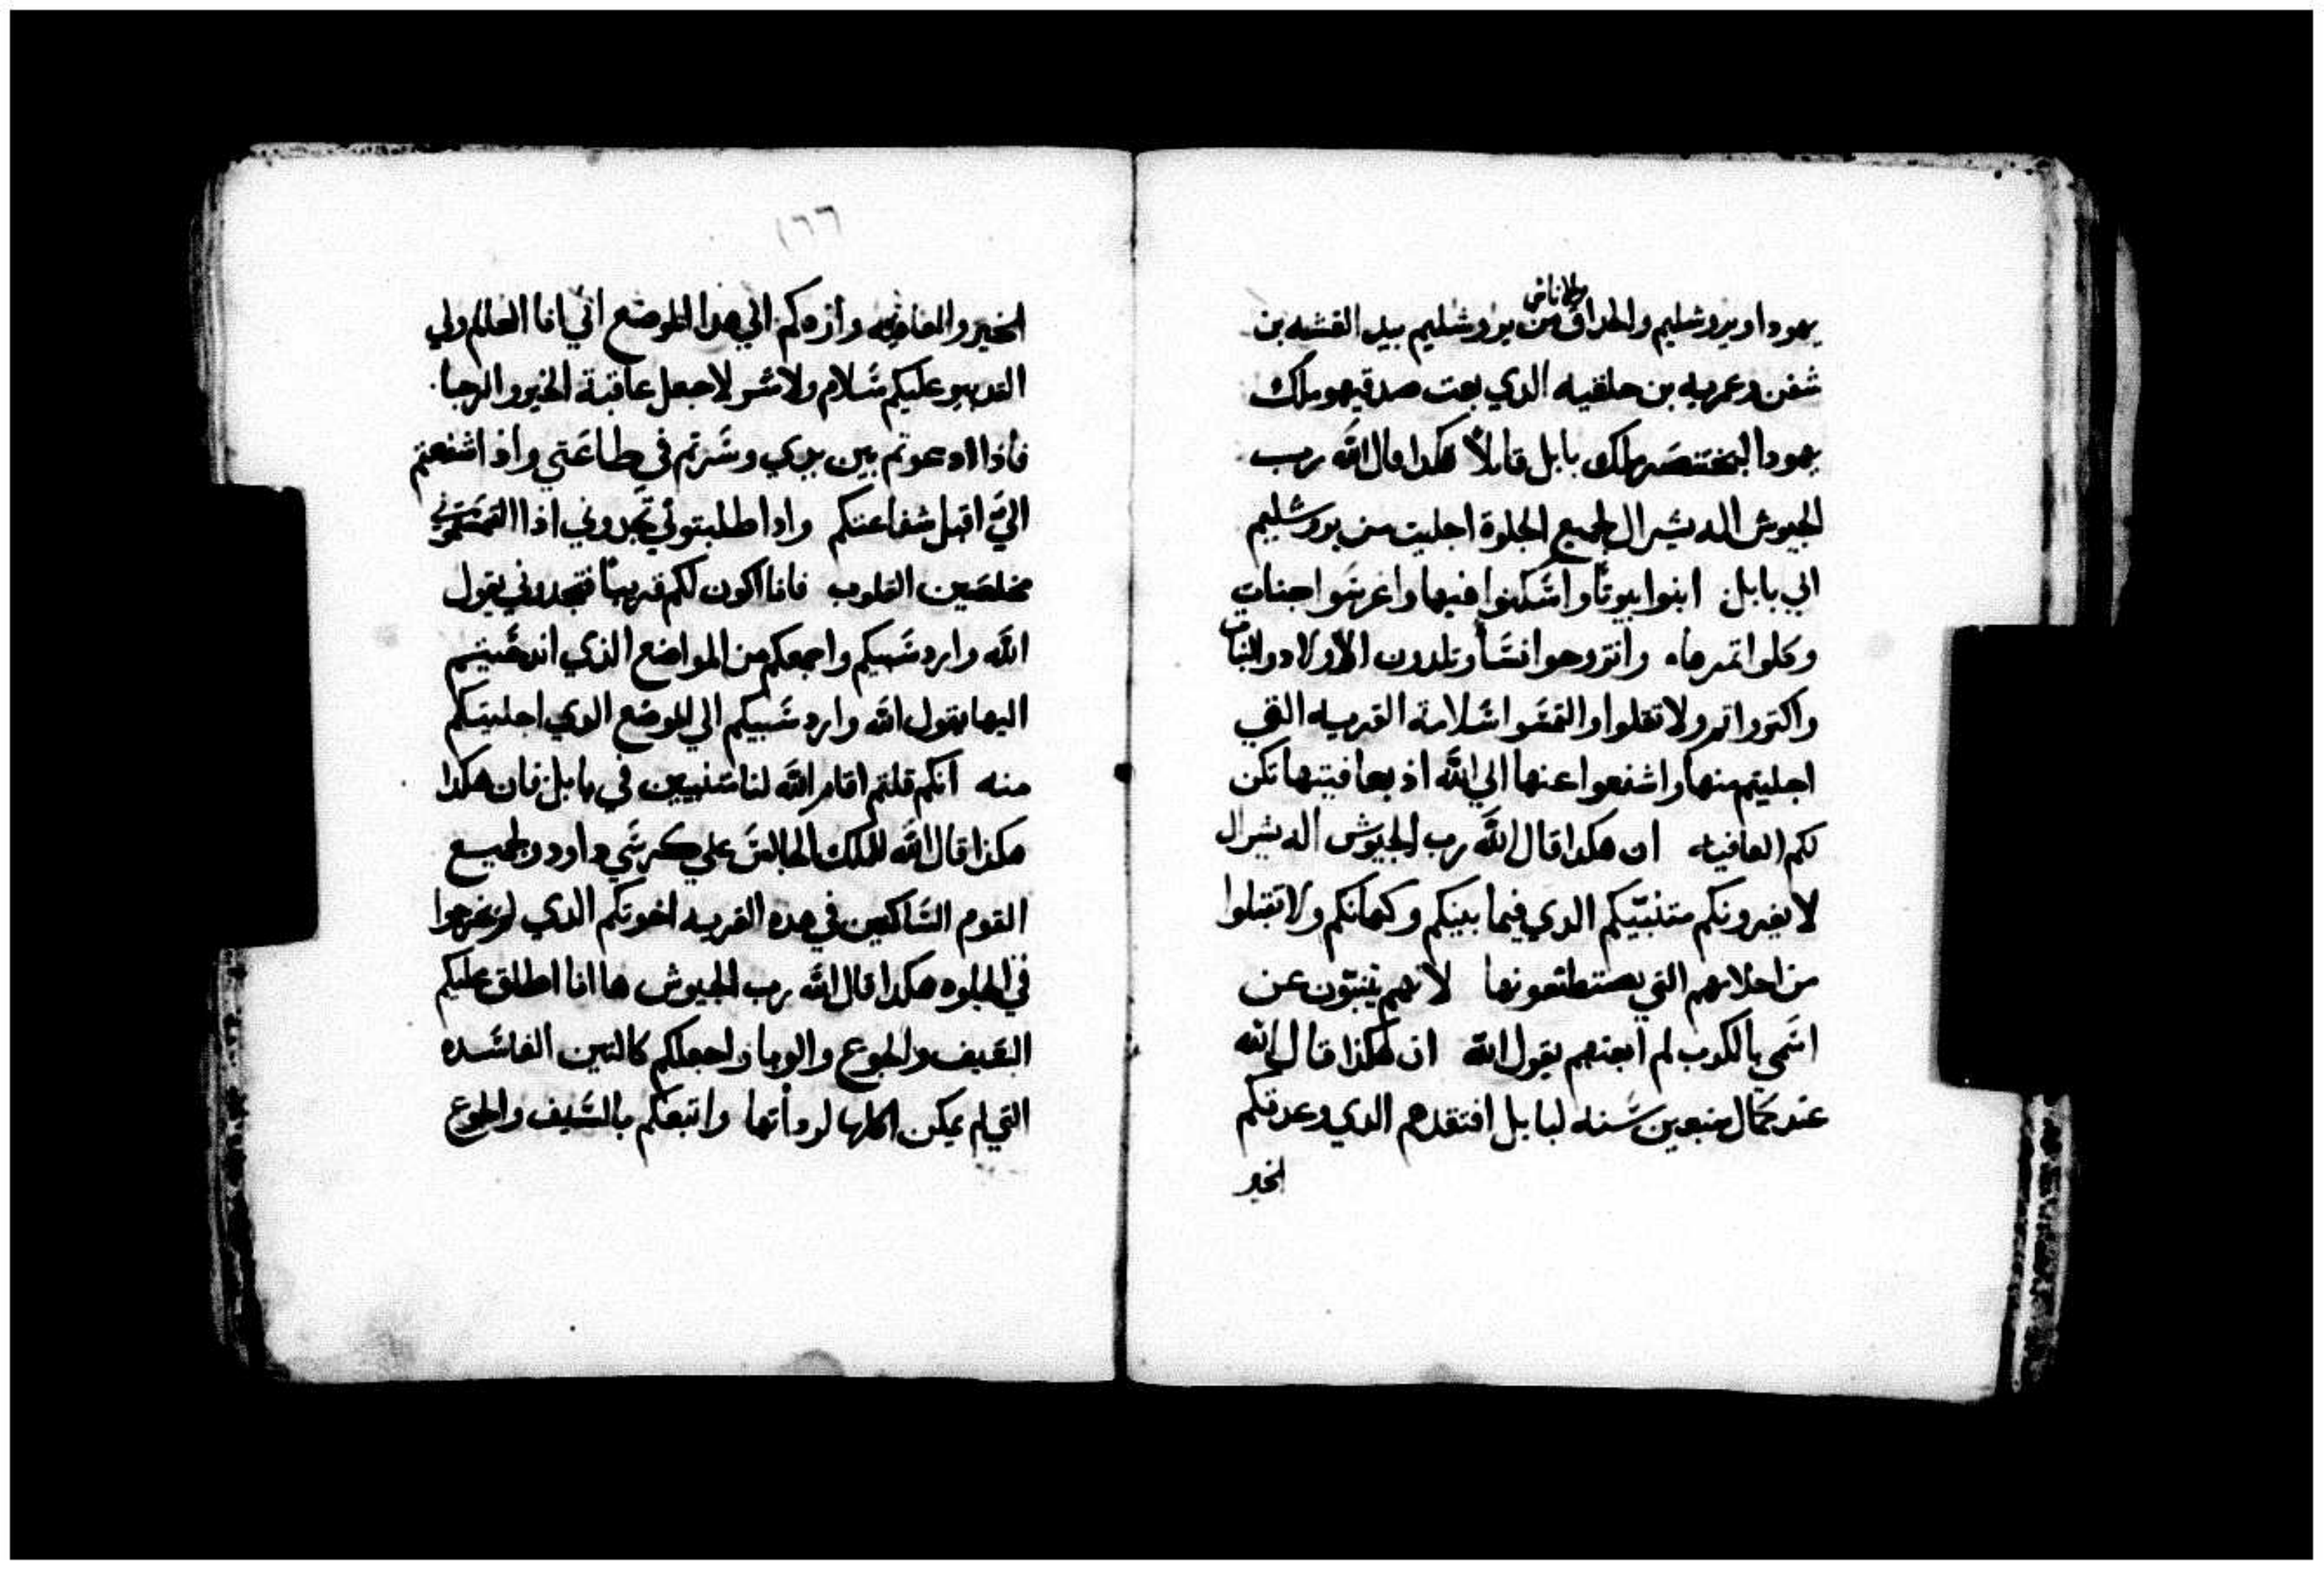 والاناث
يهودا ويروشليم والحداق من يروشليم بيد القشه بن
شفن وعمريه بن حلقيه الدي بعت صدقيهو ملك
يهودا لبختنصر ملك بابل قايلاً هكدا قال الله رب
الجيوش اله يشرال لجميع الجلوة اجليت من يروشليم
الي بابل ابنوا بيوتًا واشكنوا فيها واغرشوا جنات
وكلوا تمرها وانتزوجوا نشأ وتلدون الاولاد والبنات
واكتروا تم ولا تقلوا والتمشوا شلامة القريه التي
اجليتم منها واشفعوا عنها الي الله اذ بعافيتها تكن
لكم العافيه ان هكدا قال الله رب الجيوش اله يشرال
لا يغيرونكم متنبيّكم الدي فيما بينكم وكهانكم ولا تقبلوا
من احلامهم التي يصتطنعونها لانهم ينبّون عن
اشمي بالكدب لم ابعتهم يقول الله ان هكذا قال الله
عند كمال سبعين سنه لبابل افتقدهم الدي وعدتكم
الخير
١٦٦
الخير والعافيه وازدكم الي هدا الموضع اني انا العالم ولي
التدبير عليكم شلام ولا شر لاجعل عاقبة الخير والرجا
فاذا ادعوتم بين يدي وشرتم في طاعتي واذ اشفعتم
اليّ اقبل شفاعتكم واذا طلبتوني تجدوني اذا التمشتموني
مخلصين القلوب فانا اكون لكم قريبًا فتجدوني يقول
الله وارد شبيكم واجمعكم من المواضع الذي اندحيتم
اليها يقول الله وارد شبيكم الي الموضع الدي اجليتكم
منه انكم قلتم اقام الله لنا متنبيين في بابل فان هكدا
هكذا قال الله للملك الجالش علي كرشي داود ولجميع
القوم الشاكنين في هده القريه اخوتكم الدي لم يخرجوا
في الجلوه هكدا قال الله رب الجيوش ها انا اطلق عليكم
السيف والجوع والوبا واجعلكم كالتين الفاشده
التي لم يمكن اكلها لردأتها واتبعكم بالشيف والجوع